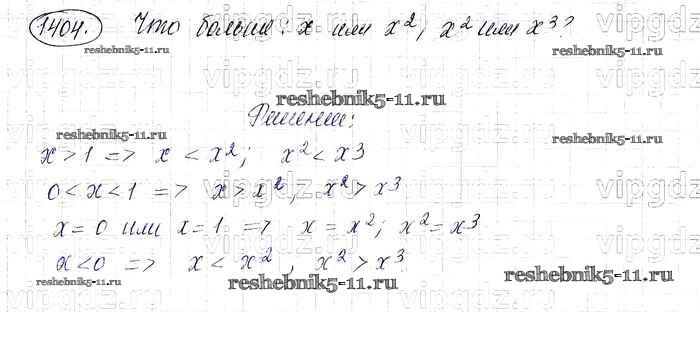 1404. Что больше: x или x², x² или x³?
reshebnik5-11.ru
reshebnik5-11.ru
Решение:
reshebnik5-11.ru
reshebnik5-11.ru
x > 1 => x < x²; x² < x³
0 < x < 1 => x > x², x² > x³
x = 0 или x = 1 => x = x²; x² = x³
x < 0 => x < x², x² > x³
reshebnik5-11.ru
reshebnik5-11.ru
vipgdz.ru